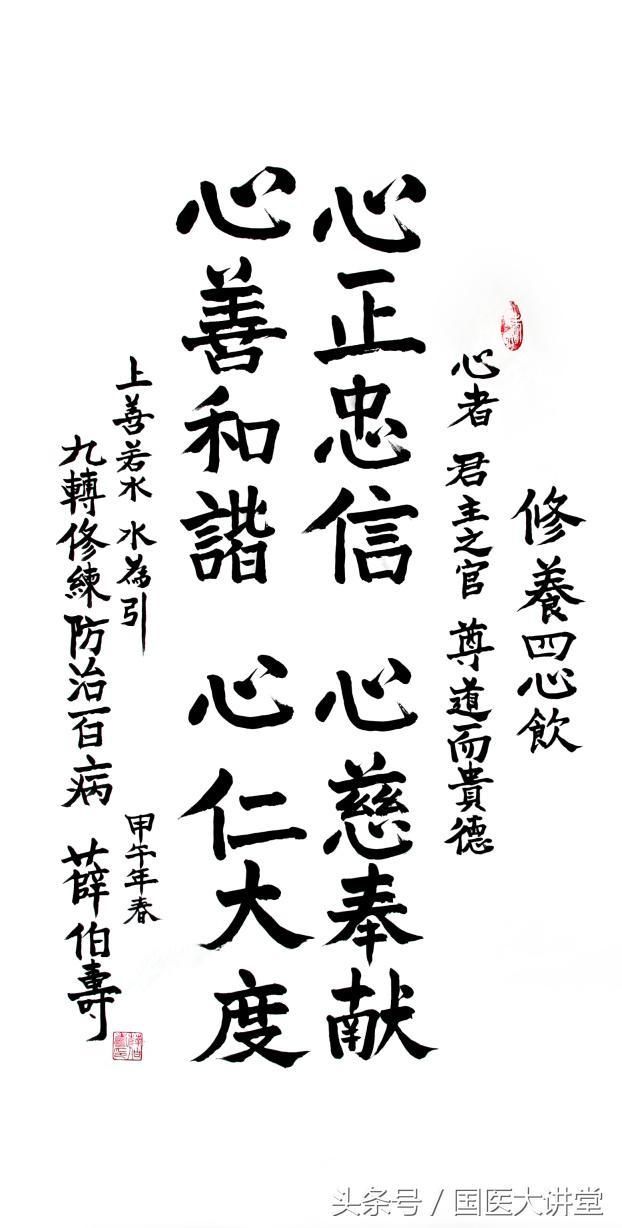 修養四心飲
心者 君主之官 尊道而貴德
心正忠信 心慈奉献
心善和諧 心仁大度
上善若水 水為引
九轉修練防治百病
甲午年春
薛伯壽
头条号 / 国医大讲堂